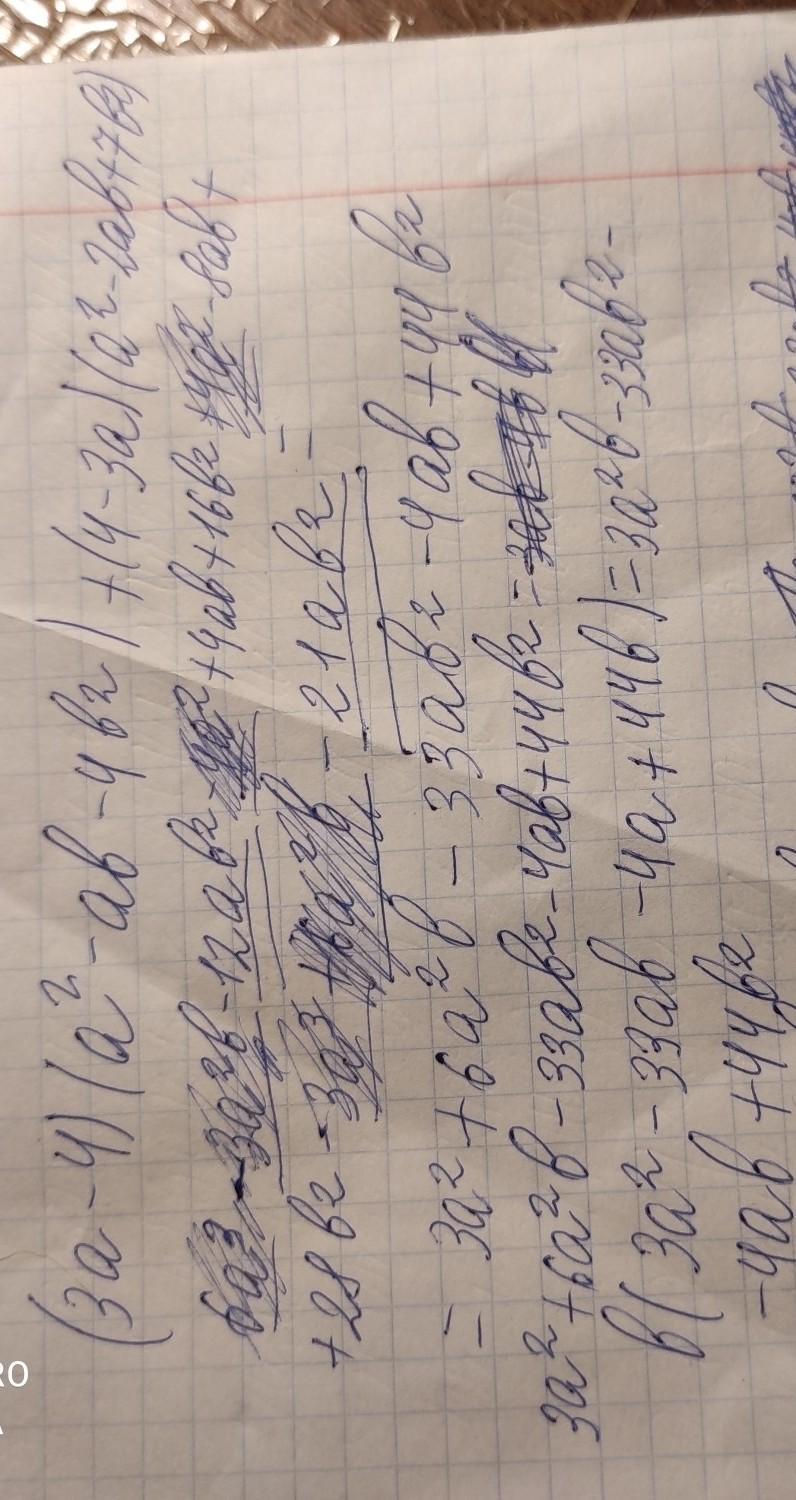 (3a-4)(a²-ab-4b²)+(4-3a)(a²-2ab+7b²)
-3a²b-12ab²-4a²+4ab+16b²+4a²-8ab+
+28b²-3a³+6a²b-21ab²=
=3a²+6a²b-33ab²-4ab+44b²
3a²+6a²b-33ab²-4ab+44b²=
b(3a²-33ab-4a+44b)=3a²b-33ab²-
-4ab+44b²